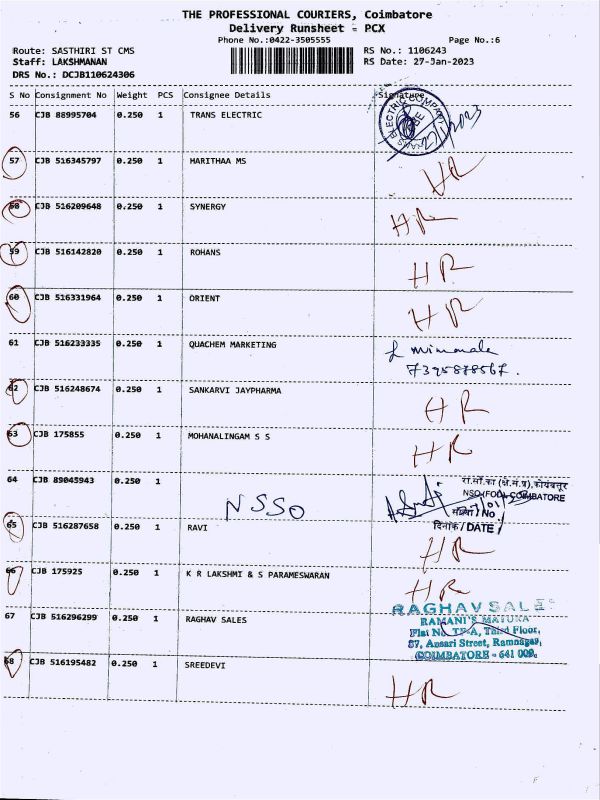 THE PROFESSIONAL COURIERS, Coimbatore
Delivery Runsheet - PCX
Phone No.:0422-3505555
Page No.:6
Route: SASTHIRI ST CMS
Staff: LAKSHMANAN
DRS No.: DCJB110624306
RS No.: 1106243
RS Date: 27-Jan-2023
S No Consignment No Weight PCS Consignee Details Signature
56 CJB 88995704 0.250 1 TRANS ELECTRIC
TRANS ELECTRIC COMPANY
57 CJB 516345797 0.250 1 HARITHAA MS HR
58 CJB 516209648 0.250 1 SYNERGY HR
59 CJB 516142820 0.250 1 ROHANS HR
60 CJB 516331964 0.250 1 ORIENT HR
61 CJB 516233335 0.250 1 QUACHEM MARKETING
7395878567.
62 CJB 516248674 0.250 1 SANKARVI JAYPHARMA HR
63 CJB 175855 0.250 1 MOHANALINGAM S S HR
64 CJB 89045943 0.250 1 NSSO
रा.सां.का (क्षे.सं.प्र), कोयंबत्तूर
NSO (FOD), COIMBATORE
संख्या / No
दिनांक / DATE
65 CJB 516287658 0.250 1 RAVI HR
66 CJB 175925 0.250 1 K R LAKSHMI & S PARAMESWARAN HR
67 CJB 516296299 0.250 1 RAGHAV SALES
RAGHAV SALES
RAMANI'S MAYURA
Flat No. TF-A, Third Floor,
87, Ansari Street, Ramnagar,
COIMBATORE - 641 009.
68 CJB 516195482 0.250 1 SREEDEVI HR